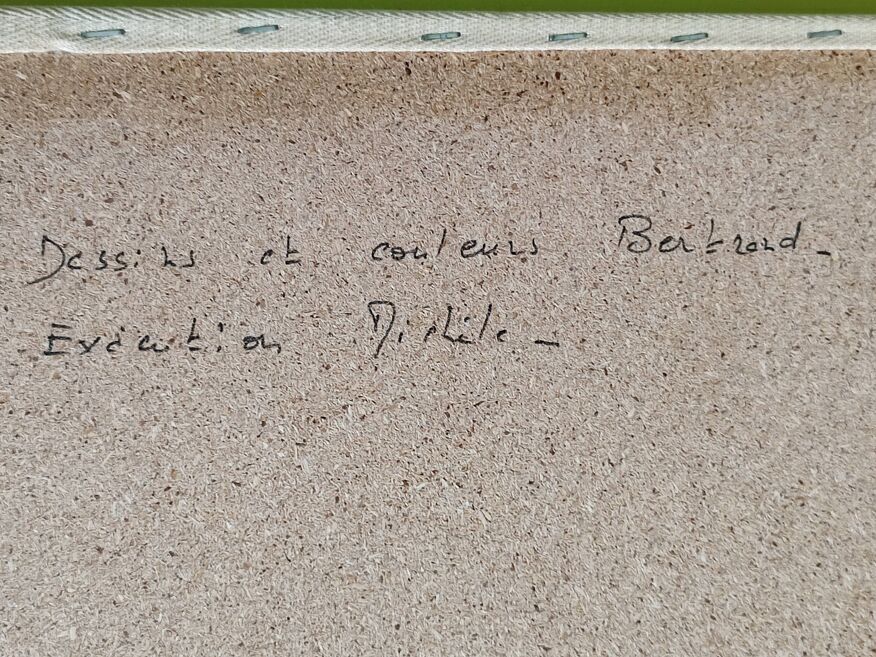 Dessins et couleurs Bertrand -
Exécution Michèle -